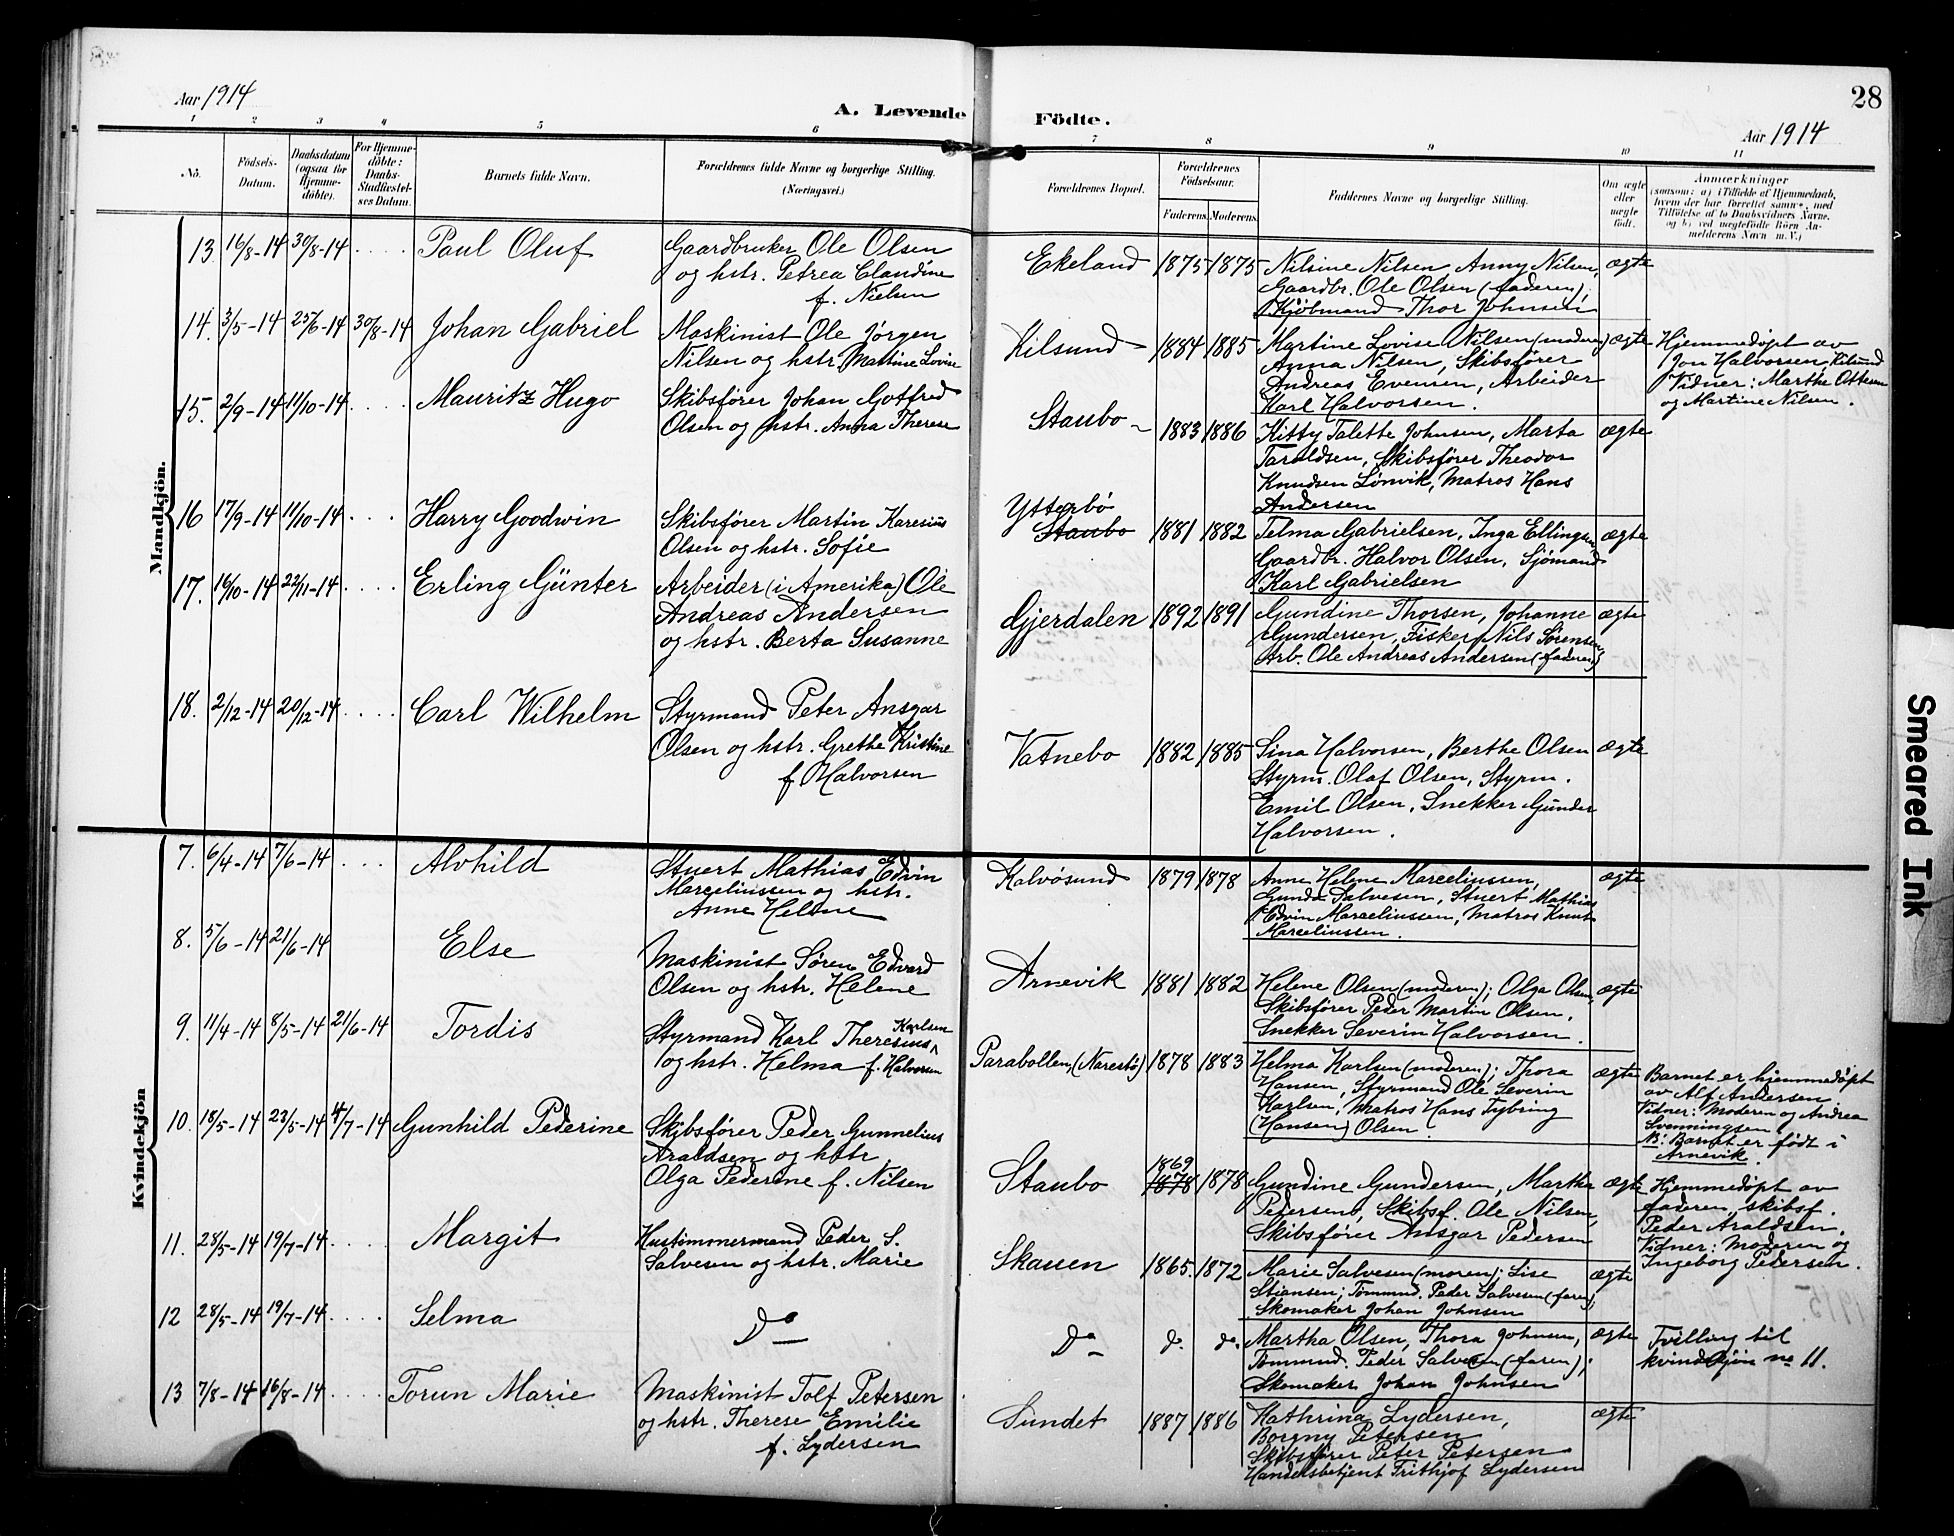 Aar 1914
A. Levende Födte.
28
Aar 1914
1 2 3 4 5 6 7 8 9 10 11
No.
Födsels-
Datum.
Daabsdatum
(ogsaa for
Hjemme-
döbte).
For Hjemme-
döbte:
Daabs-
Stadfæstel-
ses Datum.
Barnets fulde Navn.
Forældrenes fulde Navne og borgerlige Stilling.
(Næringsvei.)
Forældrenes Bopæl.
Forældrenes
Födselsaar.
Faderens. Moderens.
Faddernes Navne og borgerlige Stilling.
Om ægte
eller
uægte
födt.
Anmærkninger
(saasom: a) i Tilfælde af Hjemmedaab,
hvem der har forrettet samme, med
Tilföielse af to Daabsvidners Navne.
og b) ved uægtefödte Börn An-
melderens Navn m. V.)
Mandkjön.
13. 16/8-14 30/8-14 .... Paul Oluf
Gaardbruker Ole Olsen
og hstr. Petrea Claudine
f. Nielsen
Ekeland 1875 1875
Nilsine Nilsen, Anny Nilsen,
Gaardbr. Ole Olsen (faderen),
Kjøbmand Thor Johnsen
ægte
14. 3/5-14 25/6-14 30/8-14 Johan Gabriel
Maskinist Ole Jørgen
Nilsen og hstr. Martine Lovise
Kilsund 1884 1885
Martine Lovise Nilsen (moderen)
Anna Nilsen, Skibsfører
Andreas Evensen, Arbeider
Karl Halvorsen.
ægte
Hjemmedøpt av
Jon Halvorsen, Kilsund
Vidner: Marthe Ottesen
og Martine Nilsen.
15. 2/9-14 11/10-14 .... Mauritz Hugo
Skibsfører Johan Gotfred
Olsen og hstr. Anna Therese
Staubo 1883 1886
Kitty Talette Johnsen, Marta
Taraldsen, Skibsfører Theodor
Knudsen Lønvik, Matros Hans
Andersen
ægte
16 17/9-14 11/10-14 .... Harry Goodwin
Skibsfører Martin Karesius
Olsen og hstr. Sofie
Ytterbö
Staubo 1881 1882
Telma Gabrielsen, Inga Ellingsen,
Gaardbr. Halvor Olsen, Sjømand
Karl Gabrielsen
ægte
17. 16/10-14 22/11-14 .... Erling Günter
Arbeider (i Amerika) Ole
Andreas Andersen
og hstr. Berta Susanne
Gjerdalen 1892 1891
Gundine Thorsen, Johanne
Gundersen, Fisker Nils Sørensen,
Arb. Ole Andreas Andersen (faderen)
ægte
18. 2/12-14 20/12-14 .... Carl Wilhelm
Styrmand Peter Ansgar
Olsen og hstr. Grethe Kristine
f. Halvorsen
Vatnebo 1882 1885
Sina Halvorsen, Berthe Olsen
Styrm. Olaf Olsen, Styrm.
Emil Olsen, Snekker Gunder
Halvorsen.
ægte
Kvindekjön
7. 6/4-14 7/6-14 ... Alvhild
Stuert Mathias Edvin
Marceliussen og hstr.
Anne Helene
Kalvøsund 1879 1878
Anne Helene Marceliussen,
Gunda Salvesen, Stuert Mathias
Edvin Marceliussen, Matros Knut
Marceliussen.
ægte
8. 5/6-14 21/6-14 Else
Maskinist Søren Edvard
Olsen og hstr. Helene
Arnevik 1881 1882
Helene Olsen (moderen); Olga Olsen,
Skibsfører Peder Martin Olsen,
Snekker Severin Halvorsen.
ægte
9. 11/4-14 8/5-14 21/6-14 Tordis
Styrmand Karl Theresius Karlsen
og hstr. Helma f. Halvorsen
Parabollen, (Narestø) 1878 1883
Helma Karlsen (moderen); Thora
Hansen, Styrmand Ole Severin
Karlsen, Matros Hans Tybring
(Hansen) Olsen.
ægte
Barnet er hjemmedøpt
av Alf Andersen
Vidner: Moderen og Andrea
Svenningsen.
N: Barnet er født i
Arnevik.
10. 18/5-14 23/5-14 4/7-14 Gunhild Pederine
Skibsfører Peder Gunnelius
Araldsen og hstr.
Olga Pederine f. Nilsen
Staubo 1869
1878 1878
Gundine Gundersen, Martha
Pedersen, Skibsf. Ole Nilsen,
Skibsfører Ansgar Pedersen
ægte
Hjemmedøpt av
faderen, skibsf.
Peder Araldsen.
Vidner: Moderen og
Ingeborg Pedersen.
11. 28/5-14 19/7-14 .... Margit
Hustømmermand Peder S.
Salvesen og hstr. Marie
Skauen 1865. 1872
Marie Salvesen (moren); Lise
Stiansen; Tømmmd. Peder Salvesen (faren);
Skomaker Johan Johnsen
ægte
12 28/5-14 19/7-14 .... Selma
Do
Do do. do.
Martha Olsen, Thora Johnsen,
Tømmmd. Peder Salvesen (faren);
Skomaker Johan Johnsen
ægte
Tvilling til
kvindekjön no 11.
13 7/8-14 16/8-14 .... Torun Marie
Maskinist Tolf Petersen
og hstr. Therese Emilie
f. Lydersen
Sundet 1887 1886
Kathrina Lydersen,
Borgny Petersen
Skibsfører Peter Petersen
Handelsbetjent Frithjof Lydersen
ægte
Smeared Ink